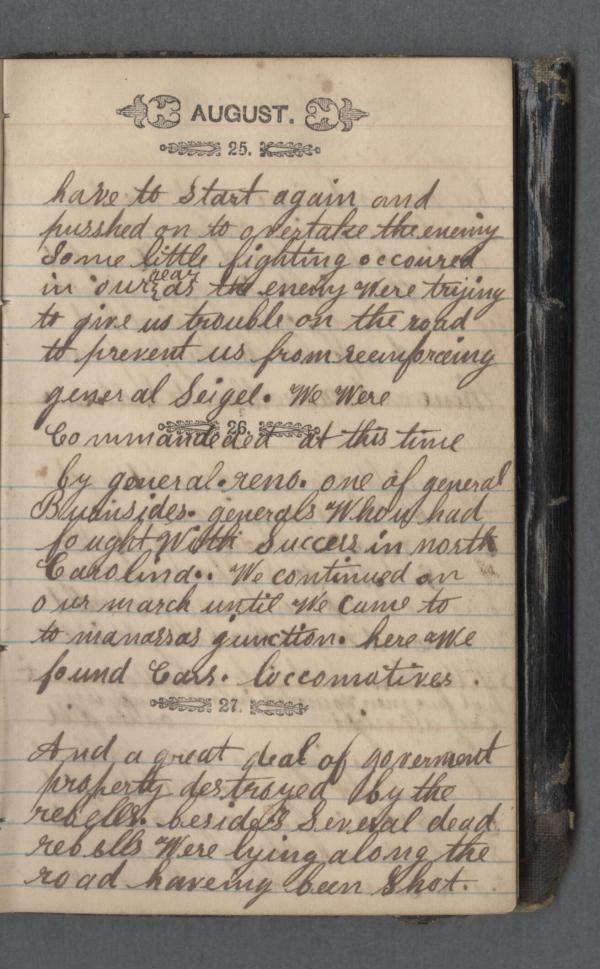 AUGUST.
25.
have to start again and
pusshed on to overtake the enemy
Some little fighting occoured
in our rear as the enemy Were trijing
to give us trouble on the road
to prevent us from reenforceing
general Seigel. We Were
26.
Commandeded at this time
by general. reno. one of general
Burnsides. generals Whow had
fought With Success in north
Carolina. We continued on
our march until We came to
to manassas junction. here We
found Cars. loccomotives.
27.
And a great deal of goverment
property destroyed by the
rebells. besides Several dead
rebells Were lying along the
road haveing been Shot.